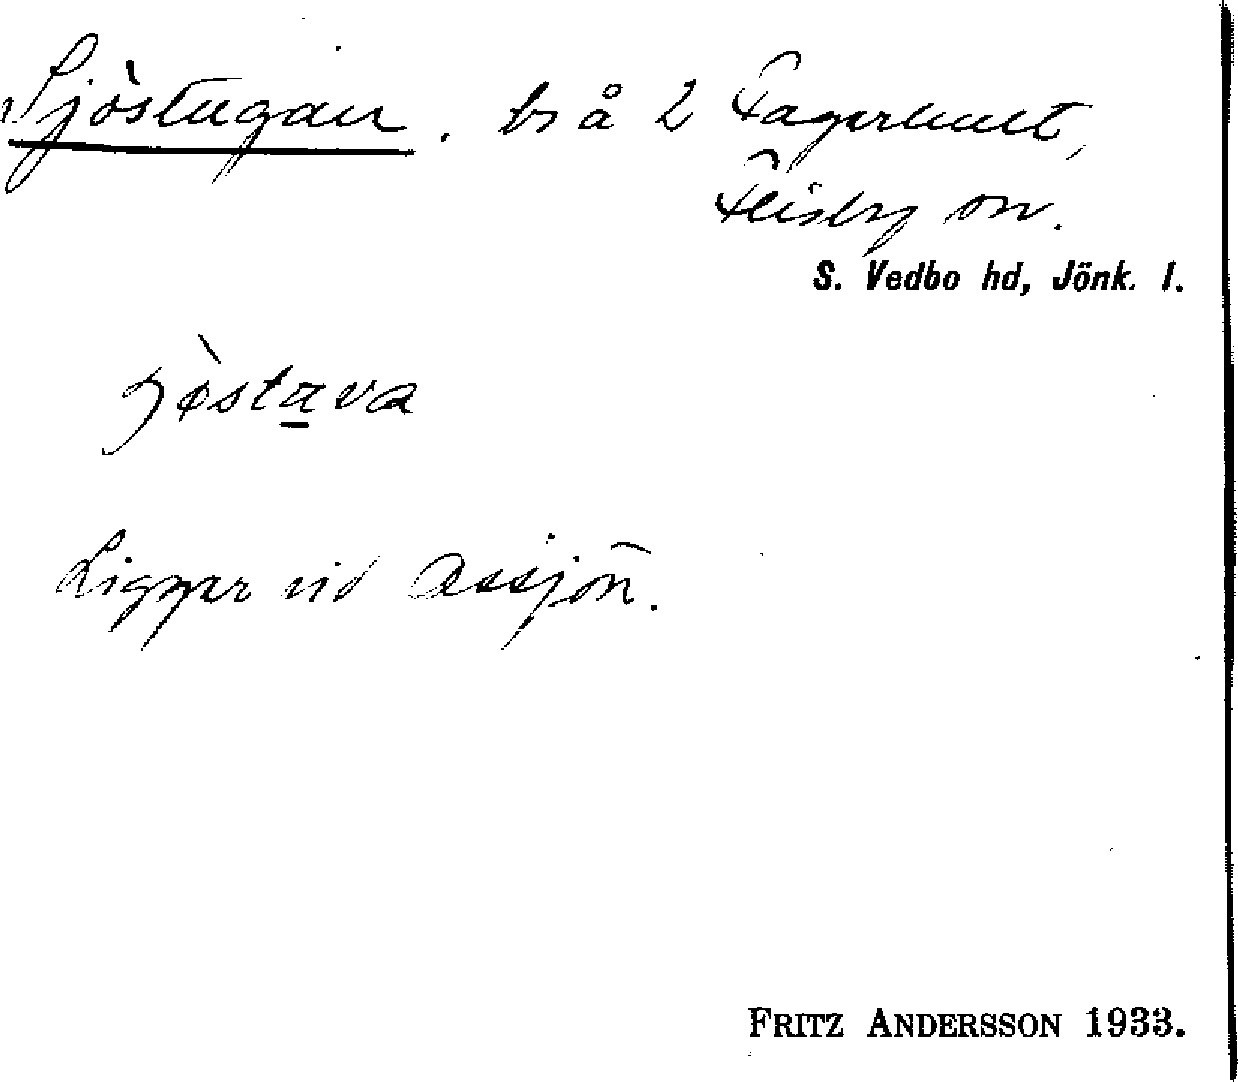 Sjöstugan. bs å 2 Fagerhult,
Flisby sn.
S. Vedbo hd, Jönk. l.
Ligger vid Assjön.
FRITZ ANDERSSON 1933.